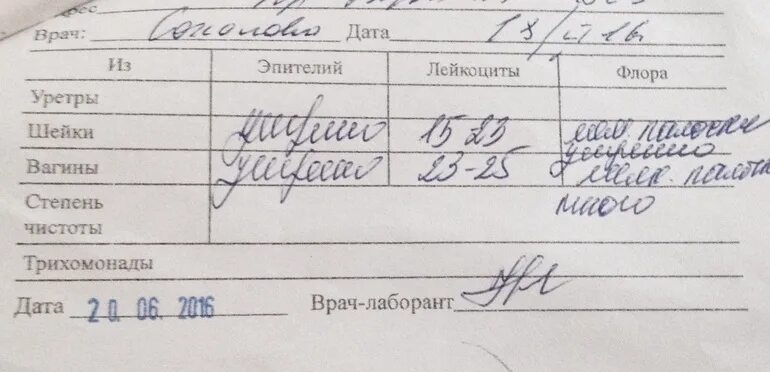 Врач: Соколова Дата 18/VI 16г
Из Эпителий Лейкоциты Флора
Уретры
Шейки умерено 15 23 мелк. палочки умеренно
Вагины умерено 23-25 мелк. палочк много
Степень
чистоты
Трихомонады
Дата 20.06.2016 Врач-лаборант